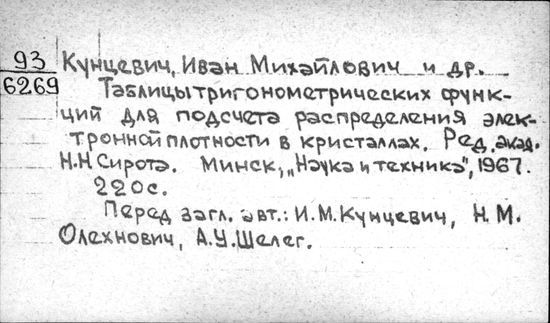 93 Кунцевич, Иван Михайлович и др.
6269 Таблицы тригонометрических функ-
ций для подсчета распределения элек-
тронной плотности в кристаллах. Ред. акад.
Н.Н Сирота. Минск, „Наука и техника", 1967.
220с.
Перед загл. авт.: И.М.Кунцевич, Н.М.
Олехнович, А.У.Шелег.